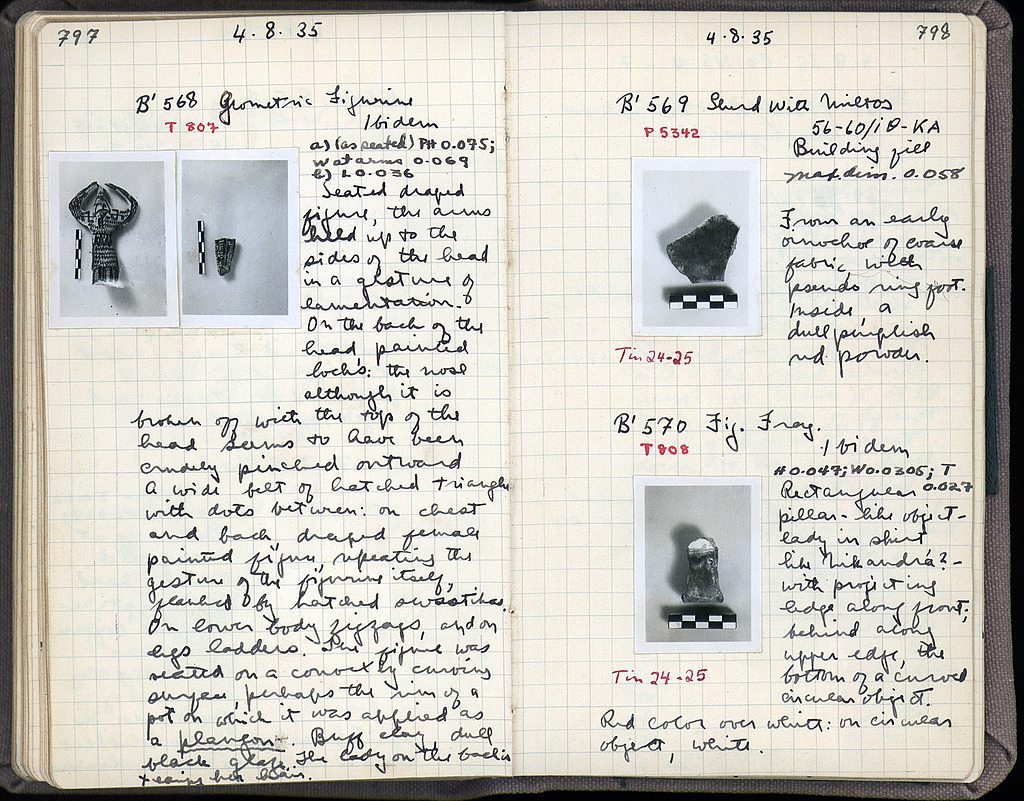 797
4.8.35
B' 568 Geometric Figurine
T 807
Ibidem
a) (as seated) PH 0.075;
W at arms 0.069
b) L 0.036
Seated draped
figure, the arms
held up to the
sides of the head
in a gesture of
lamentation.
On the back of the
head, painted
locks: the nose
although it is
broken off with the top of the
head seems to have been
crudely pinched outward
A wide belt of hatched triangles
with dots between: on chest
and back draped female
painted figure, repeating the
gesture of the figurine itself,
flanked by hatched swastikas.
On lower body zigzags, and on
legs ladders. The figure was
seated on a convexly curving
surface, perhaps the rim of a
pot on which it was applied as
a plangon. Buff clay, dull
black glaze. The lady on the back is
tearing her hair.
4.8.35
798
B' 569 Sherd with Miltos
P 5342
56-60/ΙΘ-ΚΑ
Building fill
Max. dim. 0.058
From an early
oinochoe of coarse
fabric, with
pseudo ring foot.
Inside, a
dull pinkish
red powder.
Tin 24-25
B' 570 Fig. Frag.
T 808
Ibidem
H 0.047; W 0.0305; T
0.027
Rectangular
pillar-like object-
lady in skirt
like Nikandra?-
with projecting
ledge along front;
behind along
upper edge, the
bottom of a curved
circular object.
Tin 24-25
Red color over white: on circular
object, white.